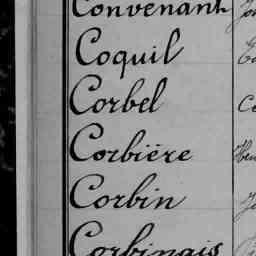 Convenant
Coquil
Corbel
Corbière
Corbin
Corbinais